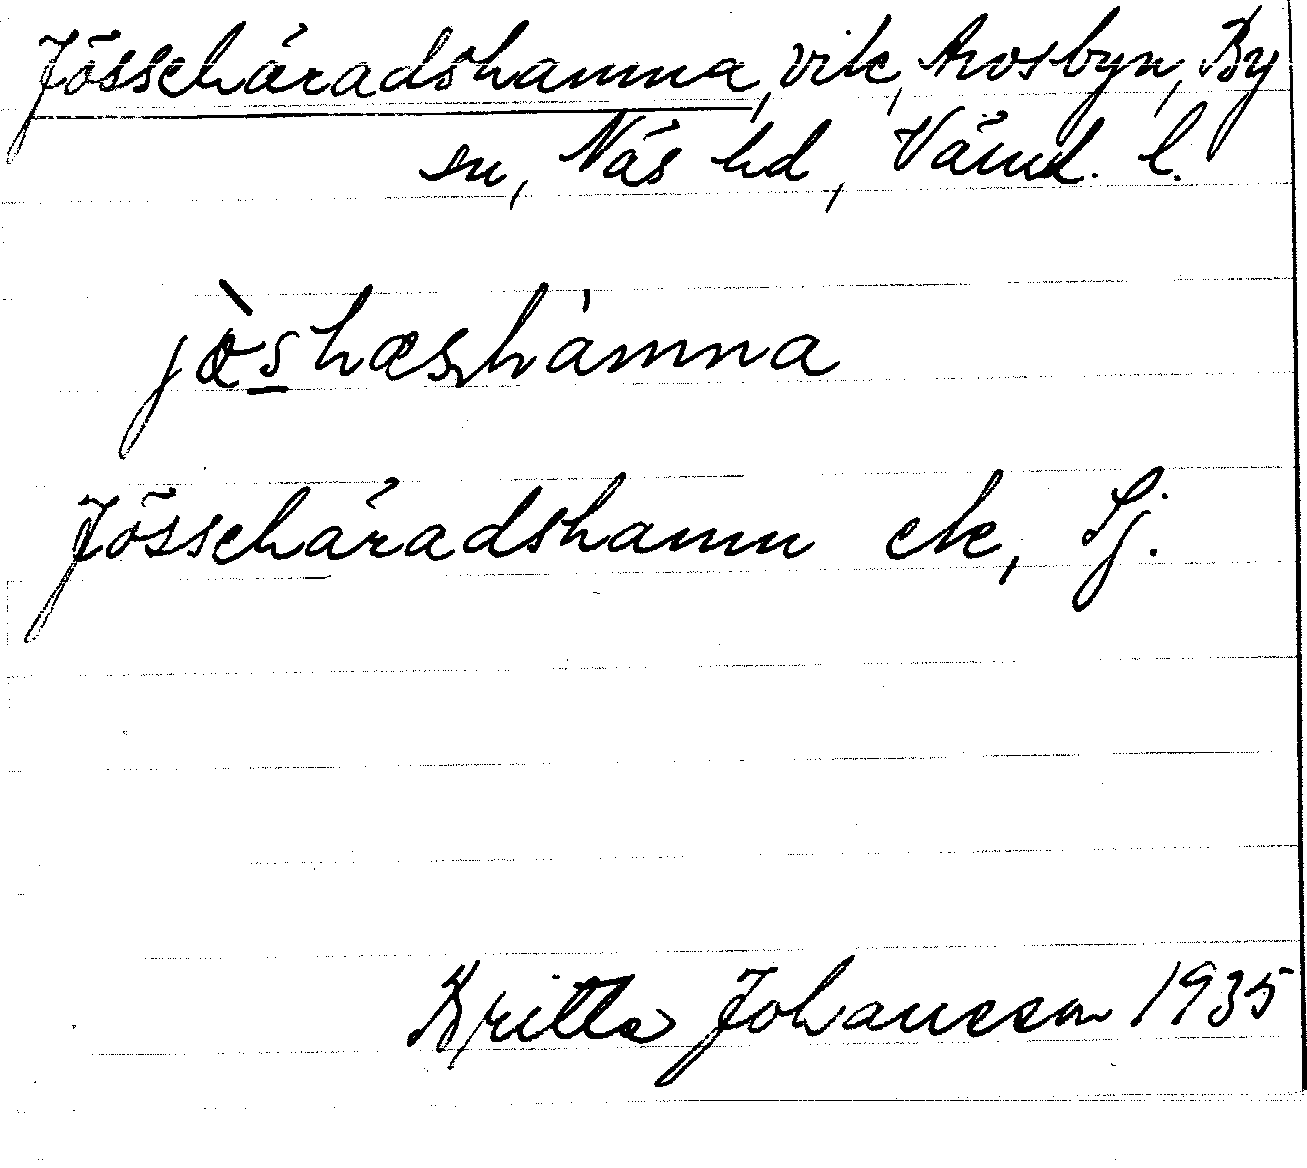 Jösschäradshamna, vik, Arosbyn, By
sn, Näs hd, Värml. l.
jö̀sʹhæsʹhàmna
Jösschäradshamn ek, Sj.
Britta Johansson 1935